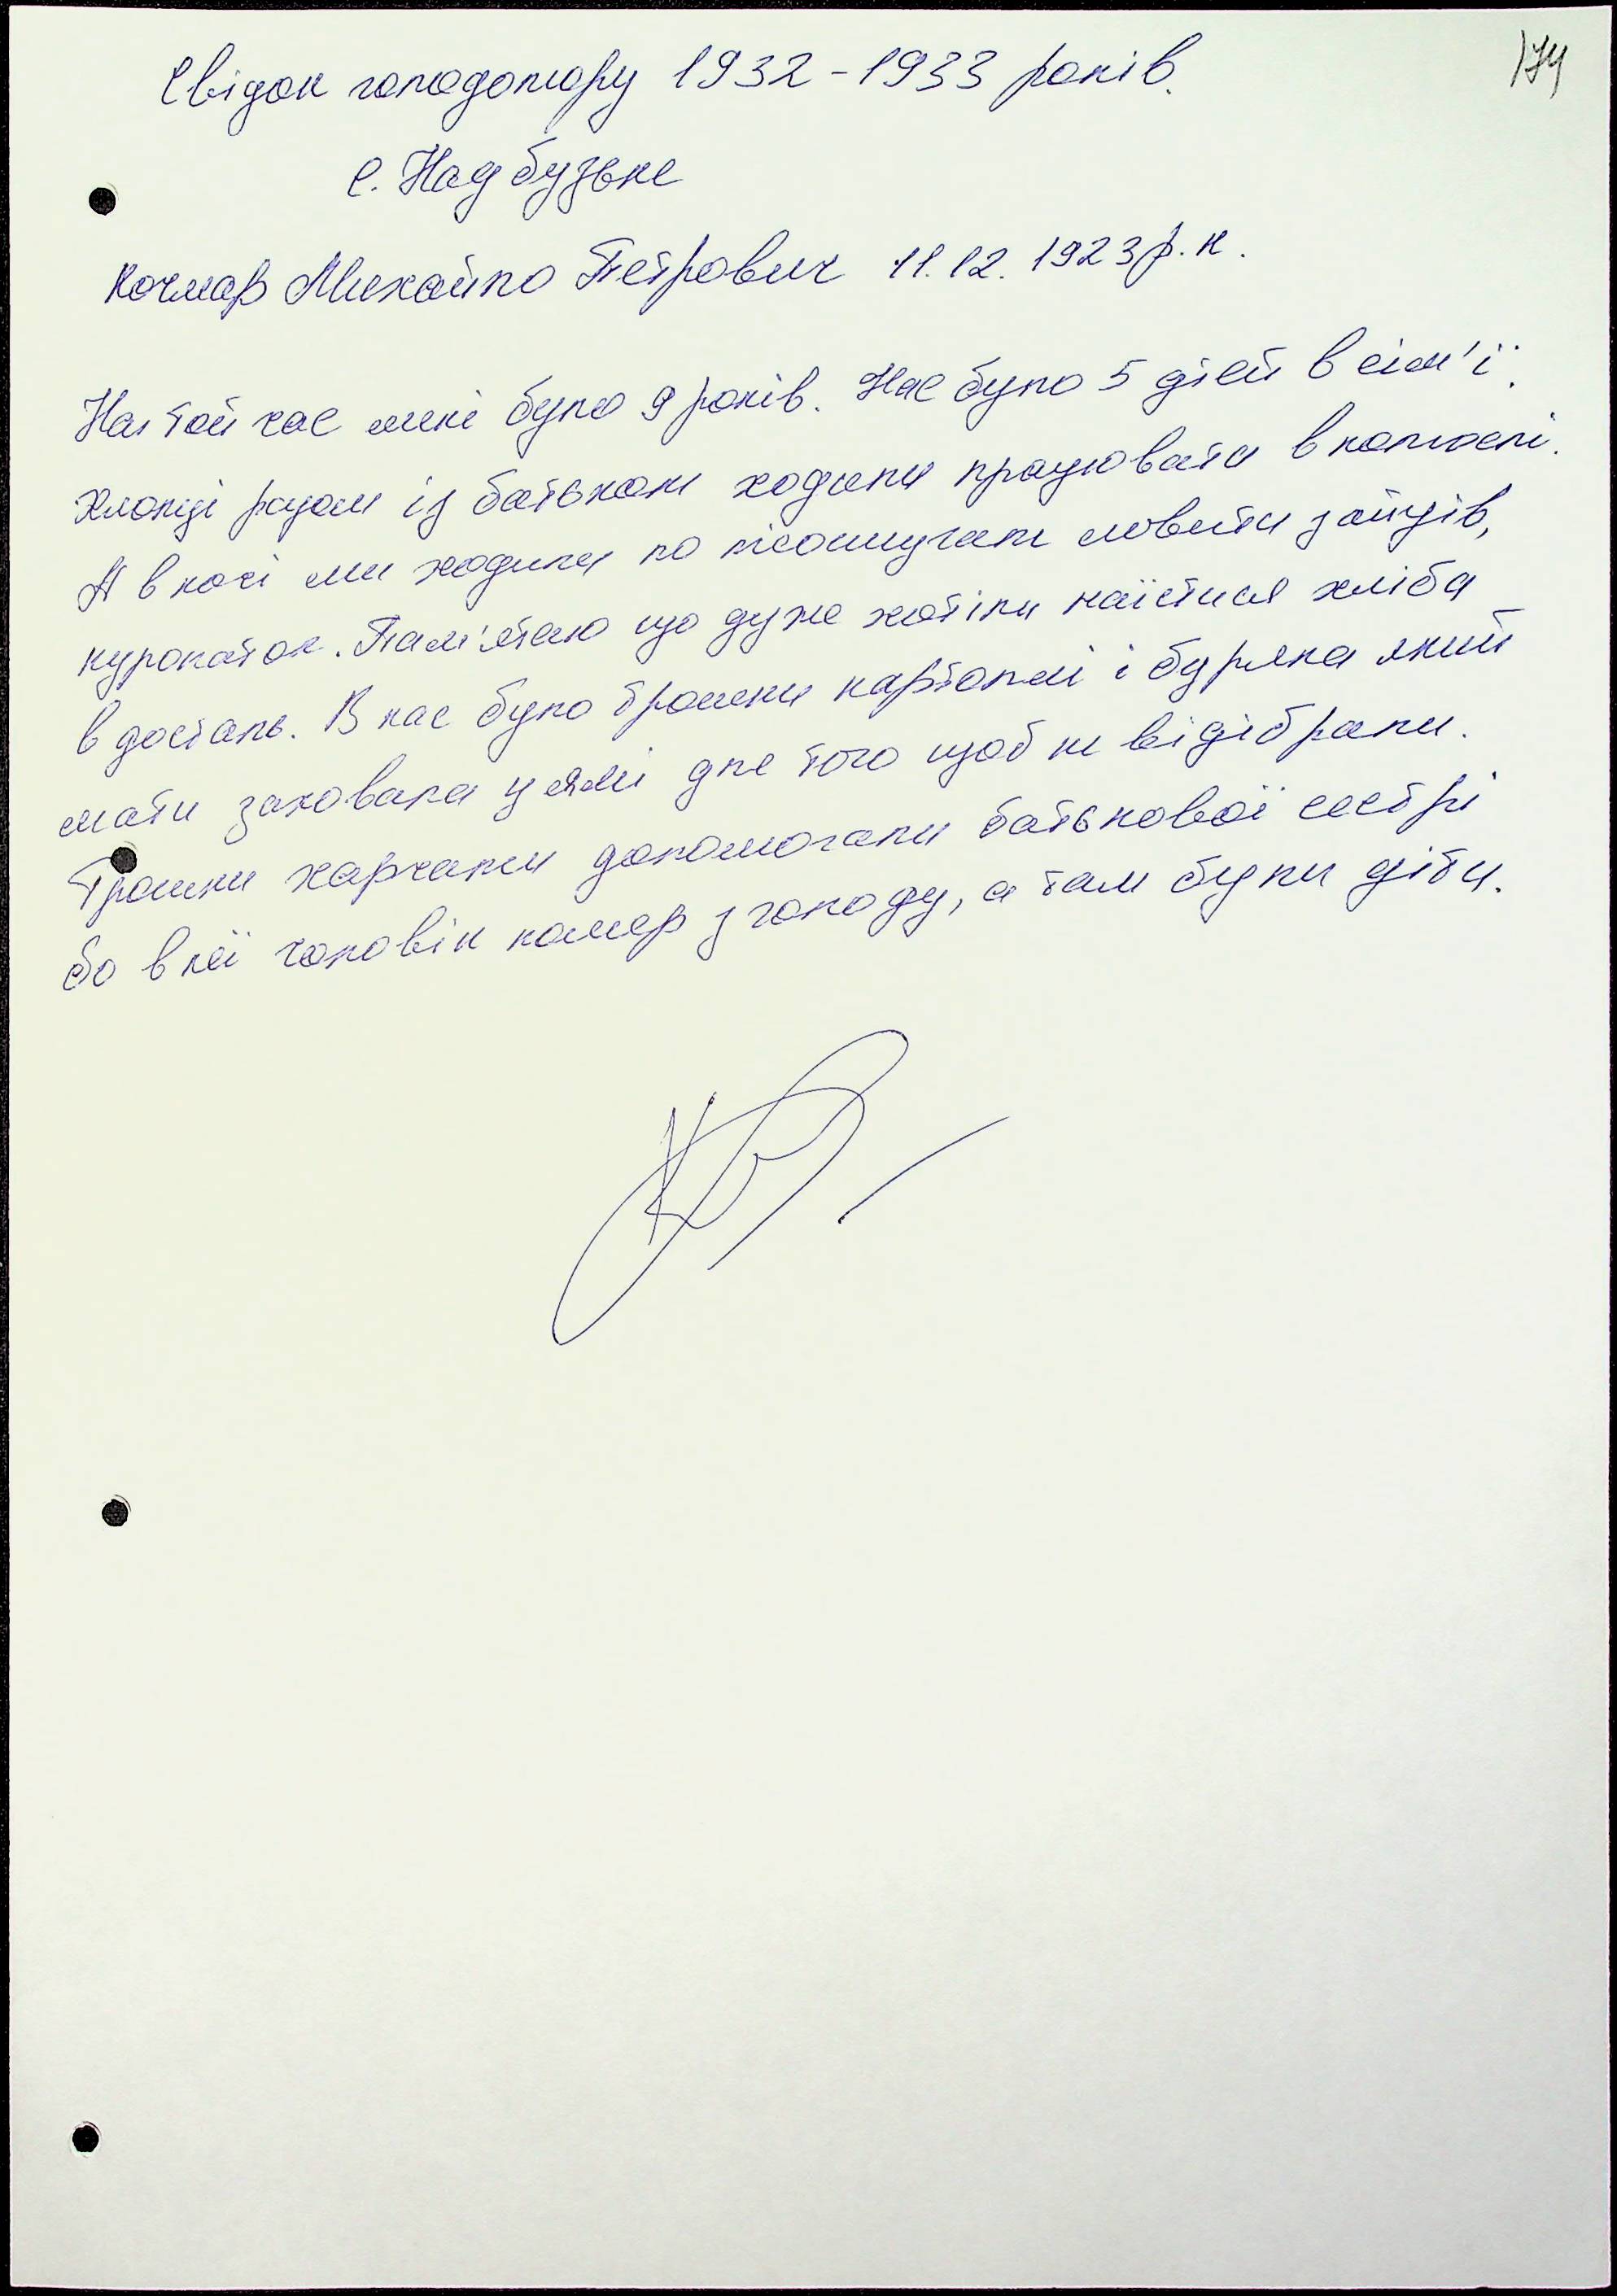 174
Свідок голодомору 1932-1933 років.
с. Надбузьке
Кочмар Михайло Петрович 11.12.1923 р.н.
На той час мені було 9 років. Нас було 5 дітей в сім'ї.
Хлопці разом із батьком ходили працювати в колгоспі.
А в ночі ми ходили по лісосмугам ловити зайців,
куропаток. Пам'ятаю що дуже хотіли наїстися хліба
в досталь. В нас було трошки картоплі і буряка який
мати заховала у ямі для того щоб не відібрали.
Трошки харчами допомогали батькової сестрі
бо в неї чоловік помер з голоду, а там були діти.